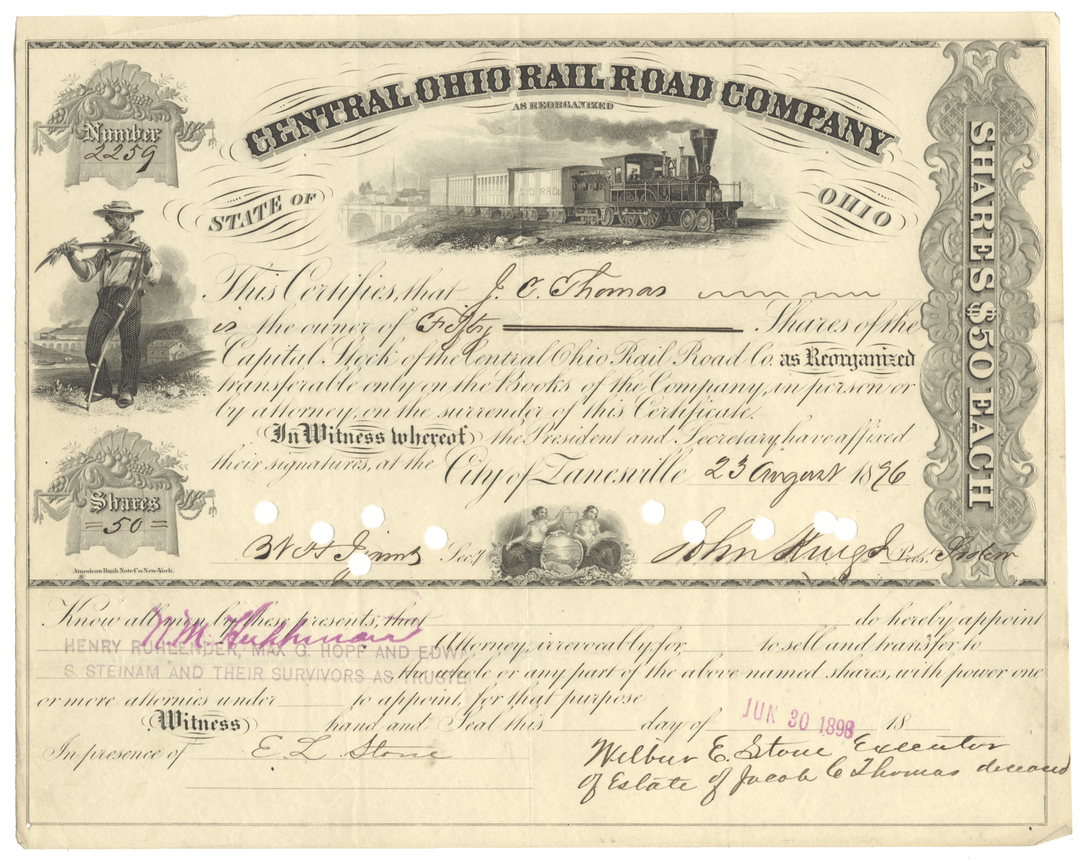 CENTRAL OHIO RAIL ROAD COMPANY
AS REORGANIZED
Number
2259
STATE OF OHIO
SHARES $50 EACH
This Certifies, that J. C. Thomas
is the owner of Fifty Shares of the
Capital Stock of the Central Ohio Rail Road Co. as Reorganized
transferable only on the Books of the Company, in person or
by attorney, on the surrender of this Certificate.
In Witness whereof the President and Secretary, have affixed
their signatures, at the City of Zanesville 23 August 1896
Shares
=50=
Sec'y
John Pres't
American Bank Note Co. New-York.
Know all men by these presents, that do hereby appoint
HENRY RUHLENDER, MAX G. HOPF AND EDW.
Attorney, irrevocably, for to sell and transfer to
S. STEINAM AND THEIR SURVIVORS AS TRUSTE
the whole or any part of the above named shares, with power one
or more attornies under to appoint, for that purpose
Witness hand and Seal this day of JUN 30 1898 18
In presence of E. L. Stone
Wilbur E. Stone Executor
of Estate of Jacob C Thomas deceased